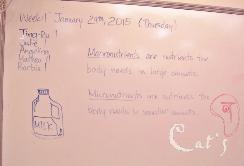 Week 1 January 29th, 2015 (Thursday)
Ting-Ru !
Julie !
Angelina
Mathew !!
Barbie !
Macronutrients are nutrients the
body needs in large amounts.
Micronutrients are nutrients the
body needs in smaller amounts.
MILK
Cat's